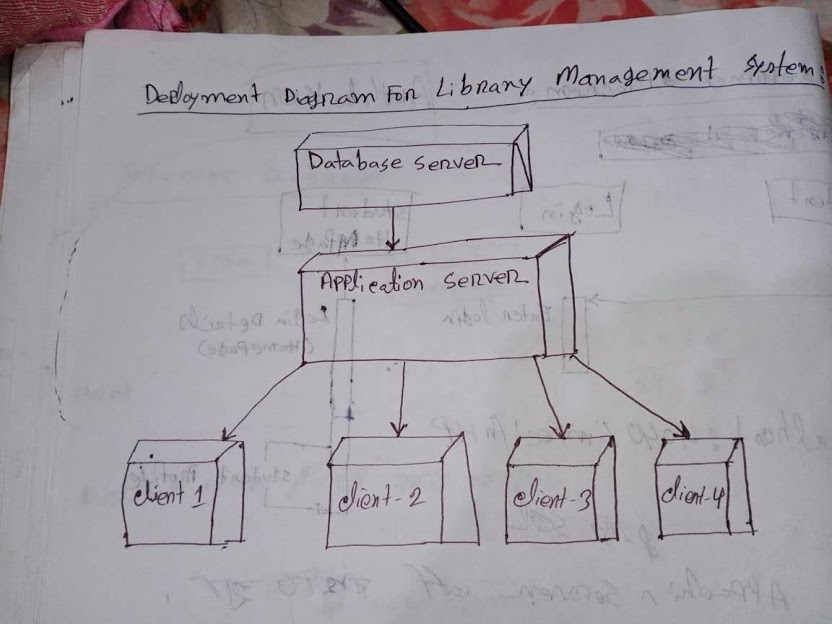 Deployment Diagram For Library Management System:
Database Server
Application Server
Client 1
Client-2
Client-3
Client-4